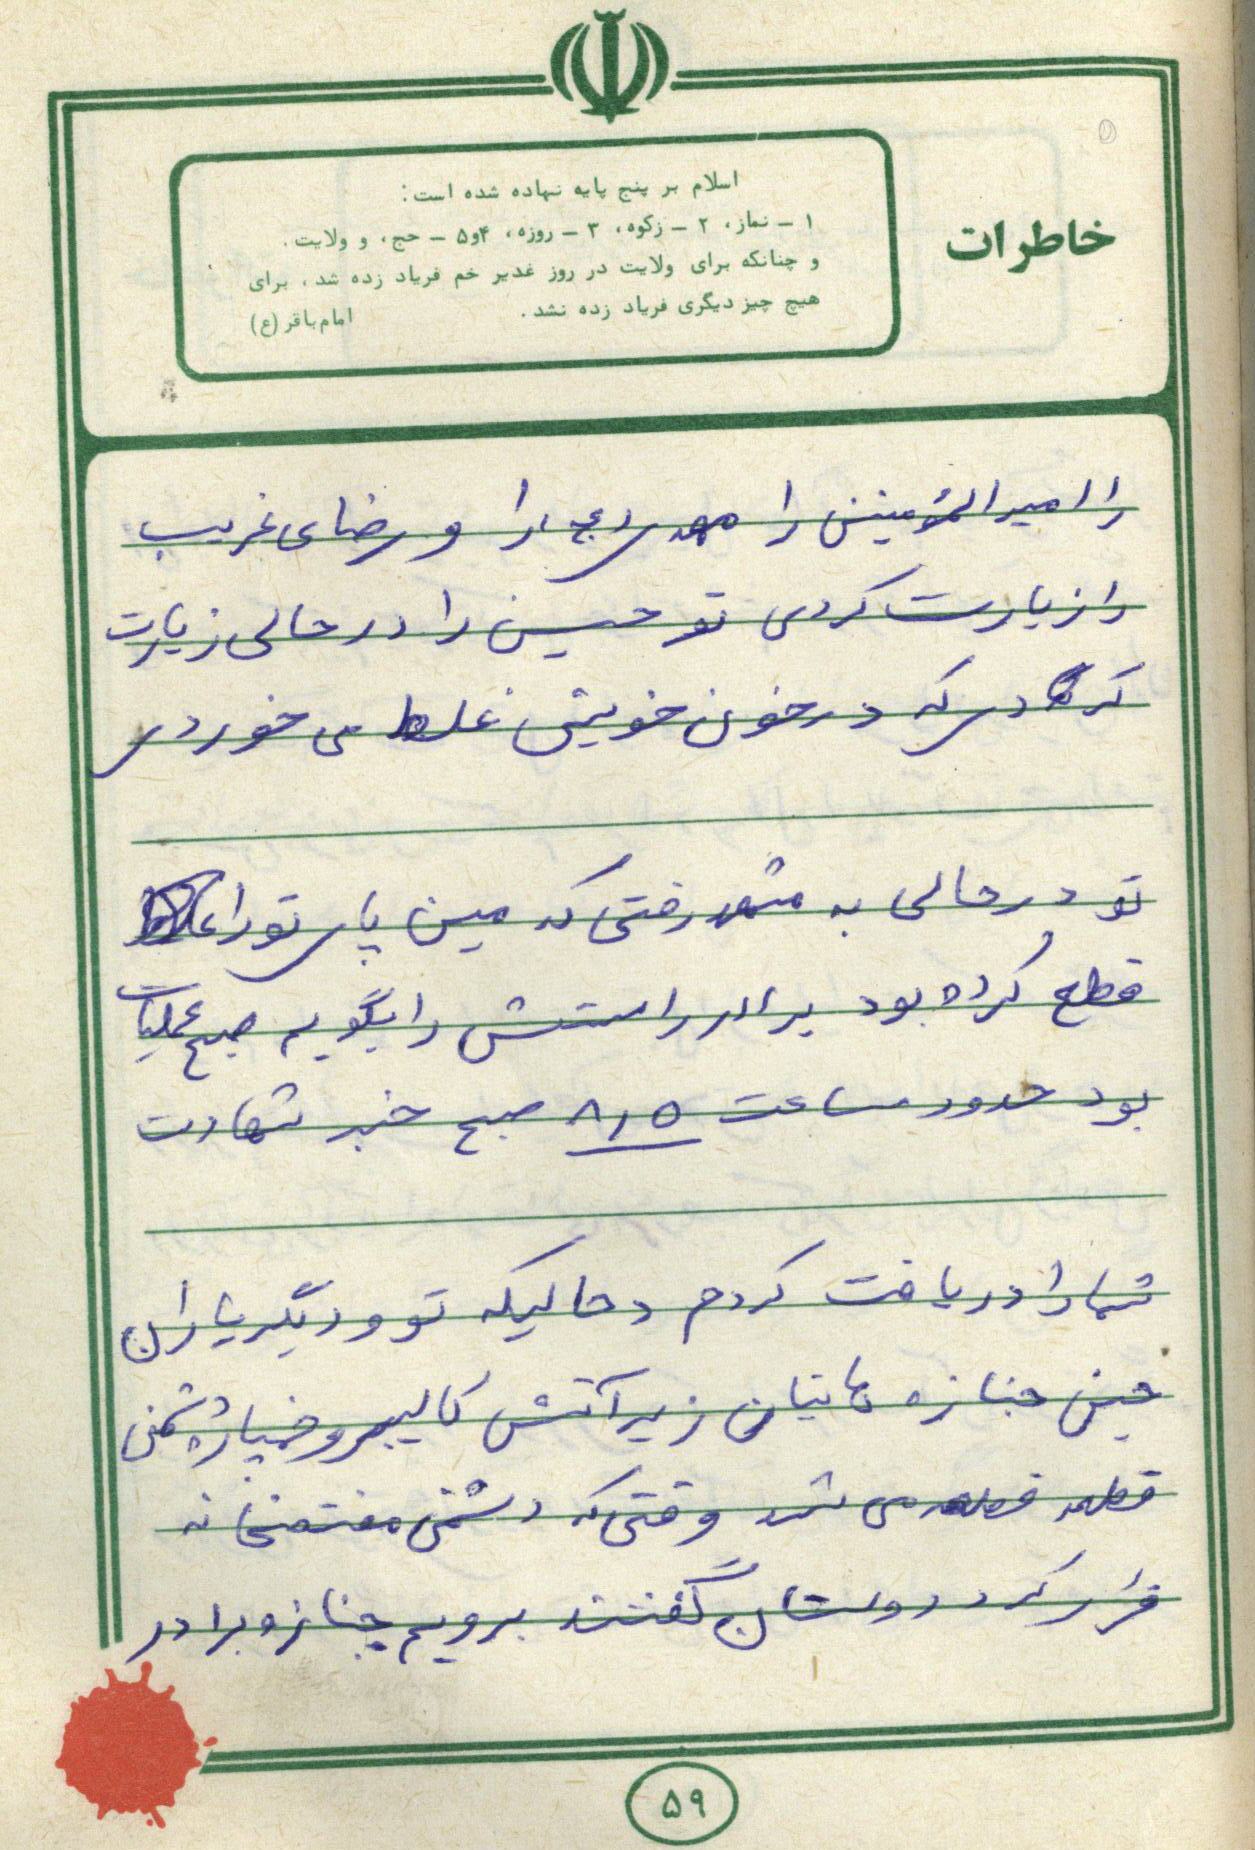 خاطرات
اسلام بر پنج پایه نهاده شده است:
۱ - نماز، ۲ - زکوه، ۳ - روزه، ۴و۵ - حج، و ولایت.
و چنانکه برای ولایت در روز غدیر خم فریاد زده شد، برای
هیچ چیز دیگری فریاد زده نشد.
امام باقر (ع)
را امیرالمؤمنین را مهدی (عج) را و رضای غریب
را زیارت کردی تو حسین را در حالی زیارت
کردی که در خون خویش غلط می خوردی
تو در حالی به مشهد رفتی که مین پای تو را
قطع کرده بود برادر راستش را بگویم صبح عملیات
بود حدود ساعت ۸/۵ صبح خبر شهادت
شما را دریافت کردم دحالیکه تو و دیگر یاران
جنازه هایتان زیر آتش کالیبر و خمپاره دشمن
قطعه قطعه می شد وقتی که دشمن مفتضحانه
فرار کرد دوستان گفتند برویم جنازه برادر
۵۹